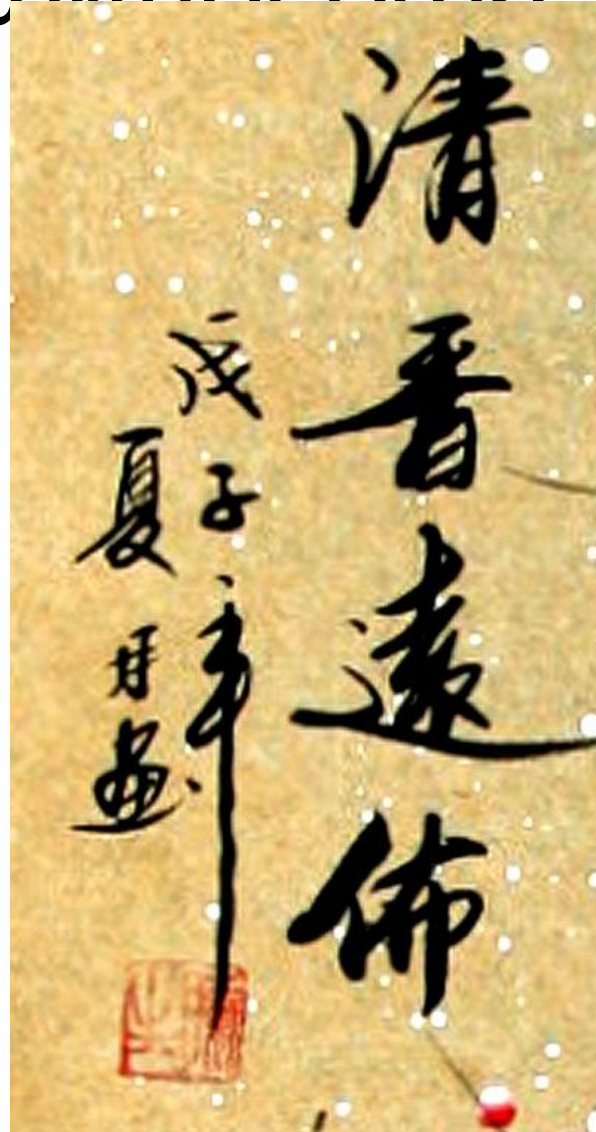 清香遠佈
戊子年
夏 畫